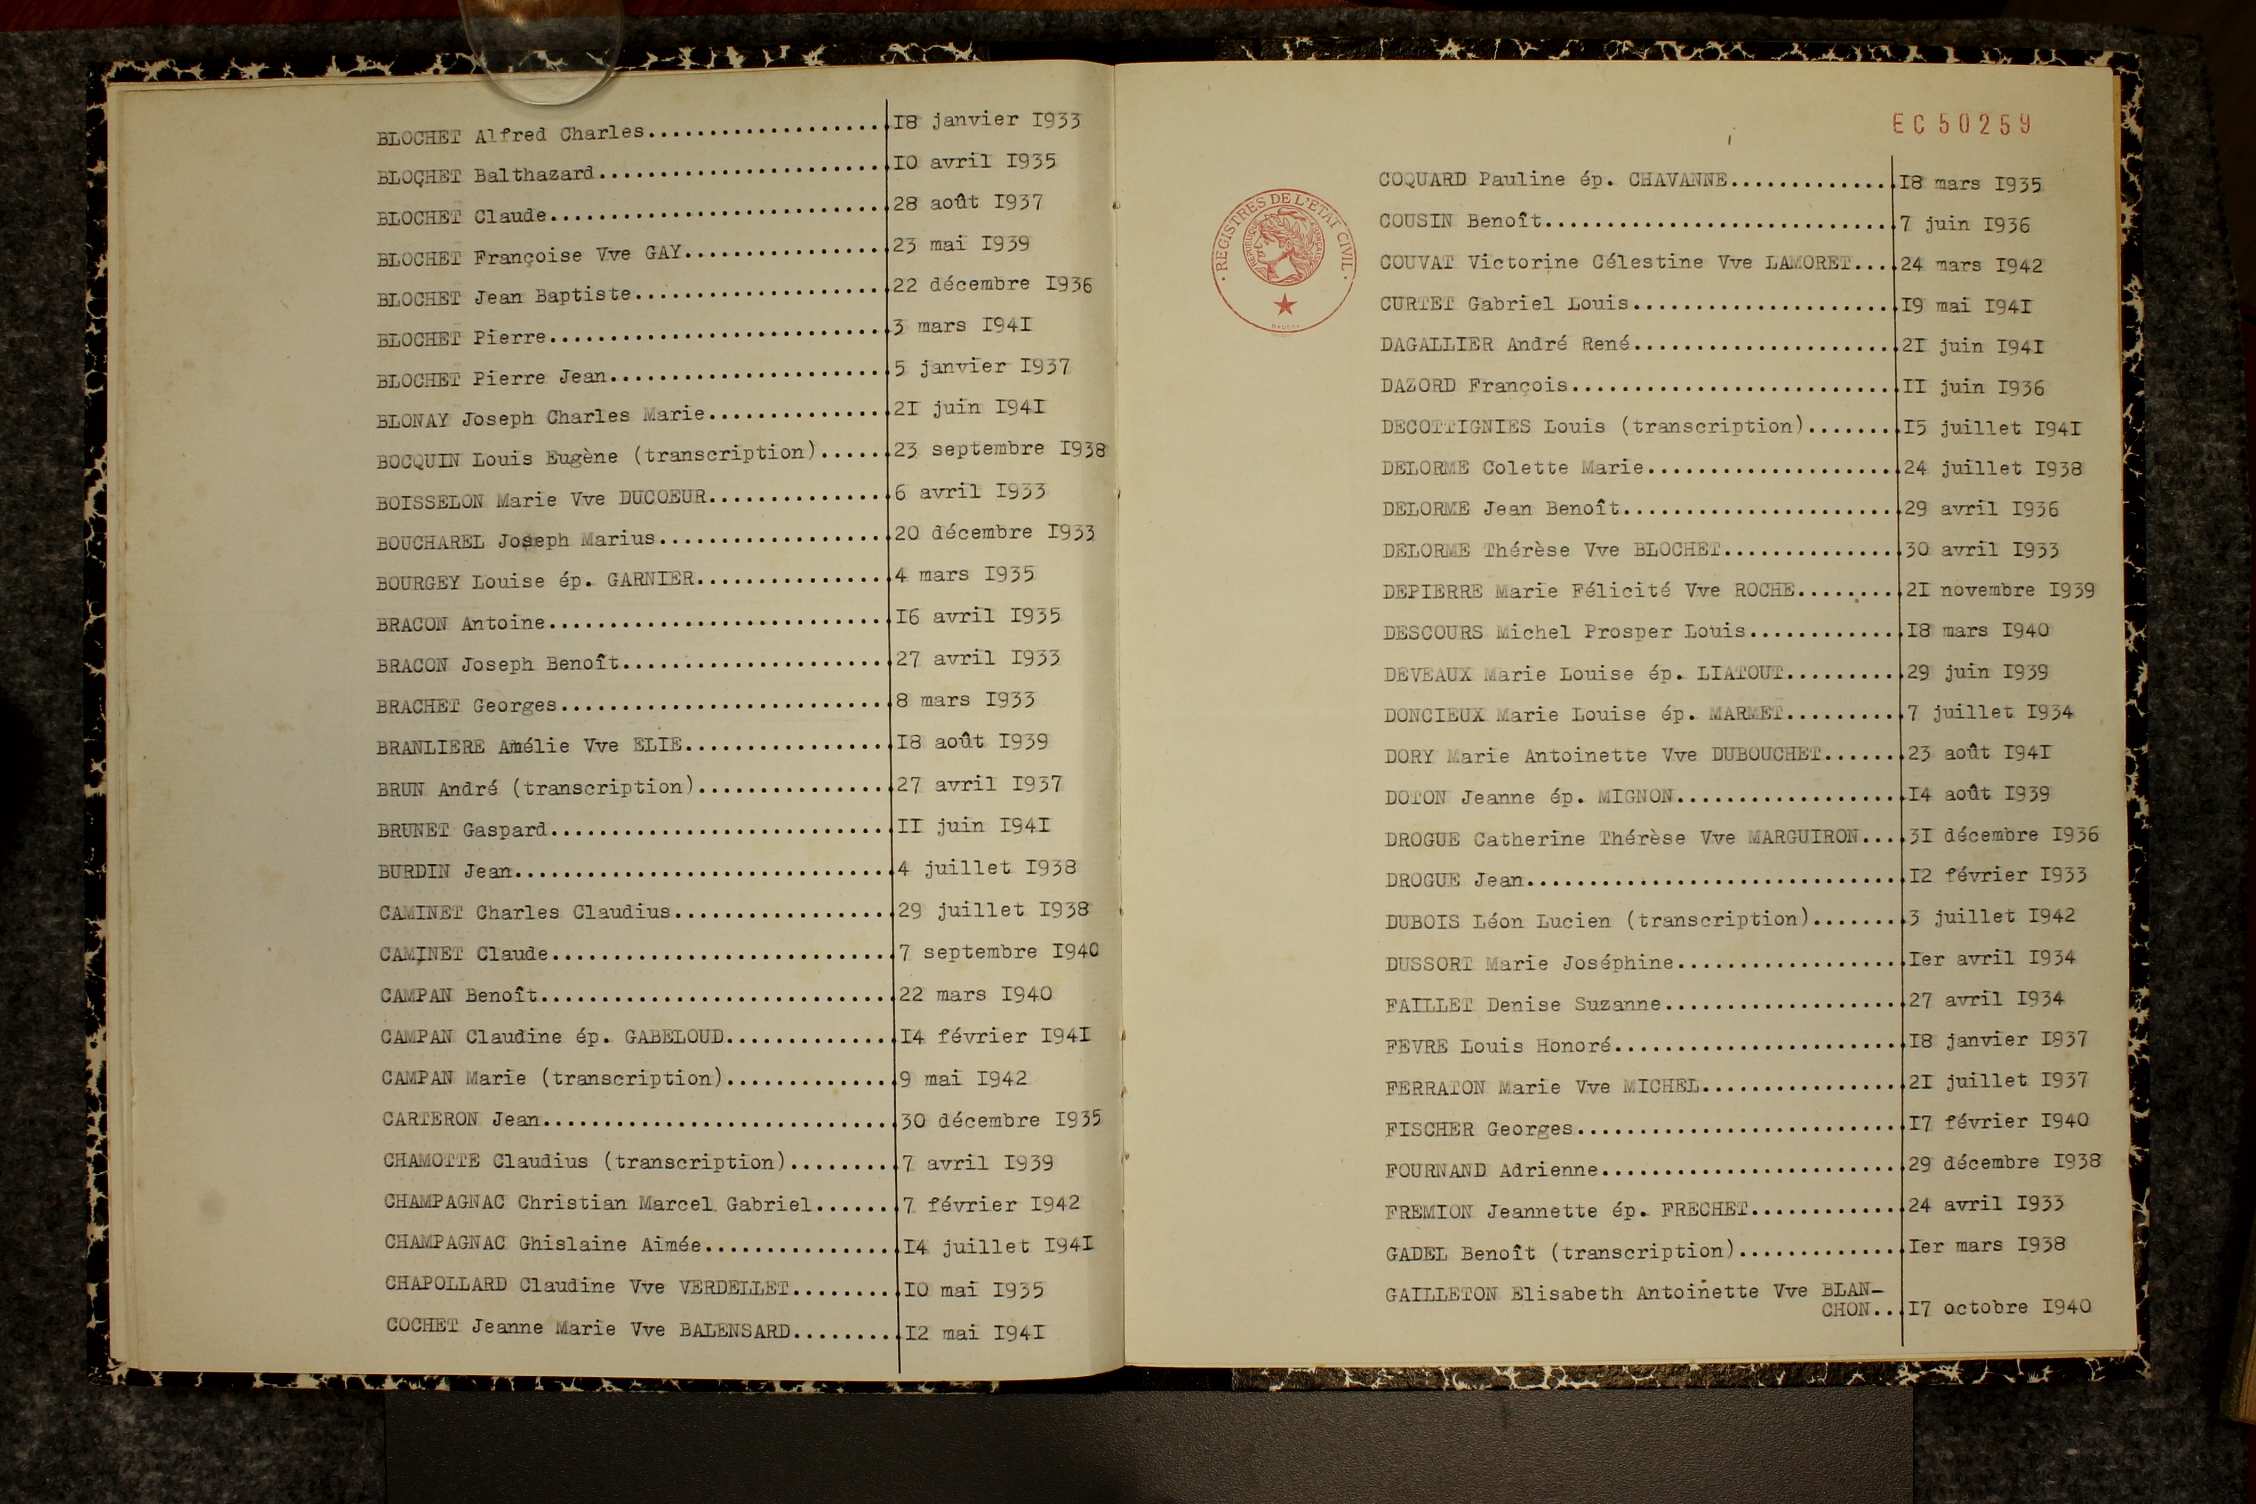 BLOCHET Alfred Charles....................18 janvier I933
BLOCHET Balthazard........................IO avril I935
BLOCHET Claude............................28 août I937
BLOCHET Françoise Vve GAY.................23 mai I939
BLOCHET Jean Baptiste.....................22 décembre I936
BLOCHET Pierre............................3 mars I94I
BLOCHET Pierre Jean.......................5 janvier I937
BLONAY Joseph Charles Marie...............2I juin I94I
BOCQUIN Louis Eugène (transcription)......23 septembre I938
BOISSELON Marie Vve DUCOEUR...............6 avril I933
BOUCHAREL Joseph Marius...................20 décembre I933
BOURGEY Louise ép. GARNIER................4 mars I935
BRACON Antoine............................I6 avril I935
BRACON Joseph Benoît......................27 avril I933
BRACHET Georges...........................8 mars I933
BRANLIERE Amélie Vve ELIE.................I8 août I939
BRUN André (transcription)................27 avril I937
BRUNET Gaspard............................II juin I94I
BURDIN Jean...............................4 juillet I938
CAMINET Charles Claudius..................29 juillet I938
CAMINET Claude............................7 septembre I940
CAMPAN Benoît.............................22 mars I940
CAMPAN Claudine ép. GABELOUD..............I4 février I94I
CAMPAN Marie (transcription)..............9 mai I942
CARTERON Jean.............................30 décembre I935
CHAMOTTE Claudius (transcription).........7 avril I939
CHAMPAGNAC Christian Marcel Gabriel.......7 février I942
CHAMPAGNAC Ghislaine Aimée................I4 juillet I94I
CHAPOLLARD Claudine Vve VERDELLET.........IO mai I935
COCHET Jeanne Marie Vve BALENSARD.........I2 mai I94I
EC50259
REGISTRES DE L'ETAT CIVIL
REPUBLIQUE FRANÇAISE
COQUARD Pauline ép. CHAVANNE..............I8 mars I935
COUSIN Benoît.............................7 juin I936
COUVAT Victorine Célestine Vve LAMORET....24 mars I942
CURTET Gabriel Louis......................I9 mai I94I
DAGALLIER André René......................2I juin I94I
DAZORD François...........................II juin I936
DECOTTIGNIES Louis (transcription)........I5 juillet I94I
DELORME Colette Marie.....................24 juillet I938
DELORME Jean Benoît.......................29 avril I936
DELORME Thérèse Vve BLOCHET...............30 avril I933
DEPIERRE Marie Félicité Vve ROCHE.........2I novembre I939
DESCOURS Michel Prosper Louis.............I8 mars I940
DEVEAUX Marie Louise ép. LIATOUT..........29 juin I939
DONCIEUX Marie Louise ép. MARMET..........7 juillet I934
DORY Marie Antoinette Vve DUBOUCHET.......23 août I94I
DOTON Jeanne ép. MIGNON...................I4 août I939
DROGUE Catherine Thérèse Vve MARGUIRON....3I décembre I936
DROGUE Jean...............................I2 février I933
DUBOIS Léon Lucien (transcription)........3 juillet I942
DUSSORT Marie Joséphine...................Ier avril I934
FAILLET Denise Suzanne....................27 avril I934
FEVRE Louis Honoré........................I8 janvier I937
FERRATON Marie Vve MICHEL.................2I juillet I937
FISCHER Georges...........................I7 février I940
FOURNAND Adrienne.........................29 décembre I938
FREMION Jeannette ép. FRECHET.............24 avril I933
GADEL Benoît (transcription)..............Ier mars I938
GAILLETON Elisabeth Antoinette Vve BLAN-
CHON...I7 octobre I940